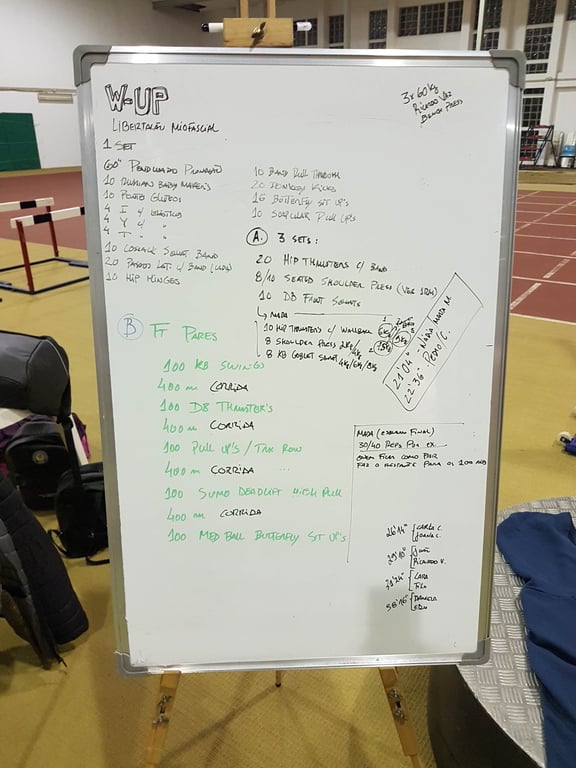 W-UP
LIBERTAÇÃO MIOFASCIAL
1 SET
60" PENDURADO PRONAÇÃO
10 RUSSIAN BABY MAKER'S
10 PONTE GLÚTEOS
4 I c/ ELÁSTICO
4 Y " "
4 T " "
10 LOSBACK SQUAT BAND
20 PASSOS LAT. c/ BAND (CADA)
10 HIP HINGES
10 BAND PULL THROUGH
20 DONKEY KICKS
16 BUTTERFLY SIT UP'S
10 SCAPULAR PULL UP'S
3x60kg
RICARDO VAZ
BENCH PRESS
A. 3 SETS:
20 HIP THRUSTERS c/ BAND
8/10 SEATED SHOULDER PRESS (VER 1RM)
10 DB FRONT SQUATS
10 HIP THRUSTER'S c/ WALLBALL
8 SHOULDER PRESS 2KG/
8 KB GOBLET SQUAT 4KG/6KG/8KG
21'04"
22'36" PEDRO C.
B FT PARES
100 KB SWINGS
400 m CORRIDA
100 DB THRUSTER'S
400 m CORRIDA
100 PULL UP'S / TRX ROW
400 m CORRIDA ...
100 SUMO DEADLIFT HIGH PULL
400 m CORRIDA
100 MED BALL BUTTERFLY SIT UP'S
30/40 REPS POR EX.
QUEM FICAR COMO PAR
FAZ O RESTANTE PARA OS 100 REPS
26'14" CARLA C.
JOANA C.
RICARDO V.
LARA
DANIELA